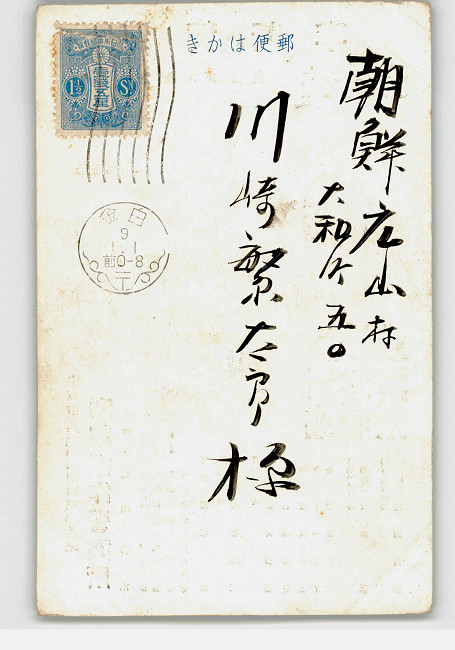 郵便はかき
朝鮮 山
大和 五〇
川崎繁太郎様
壹錢五厘
1½ Sn
白金
9
1.1
前0-8